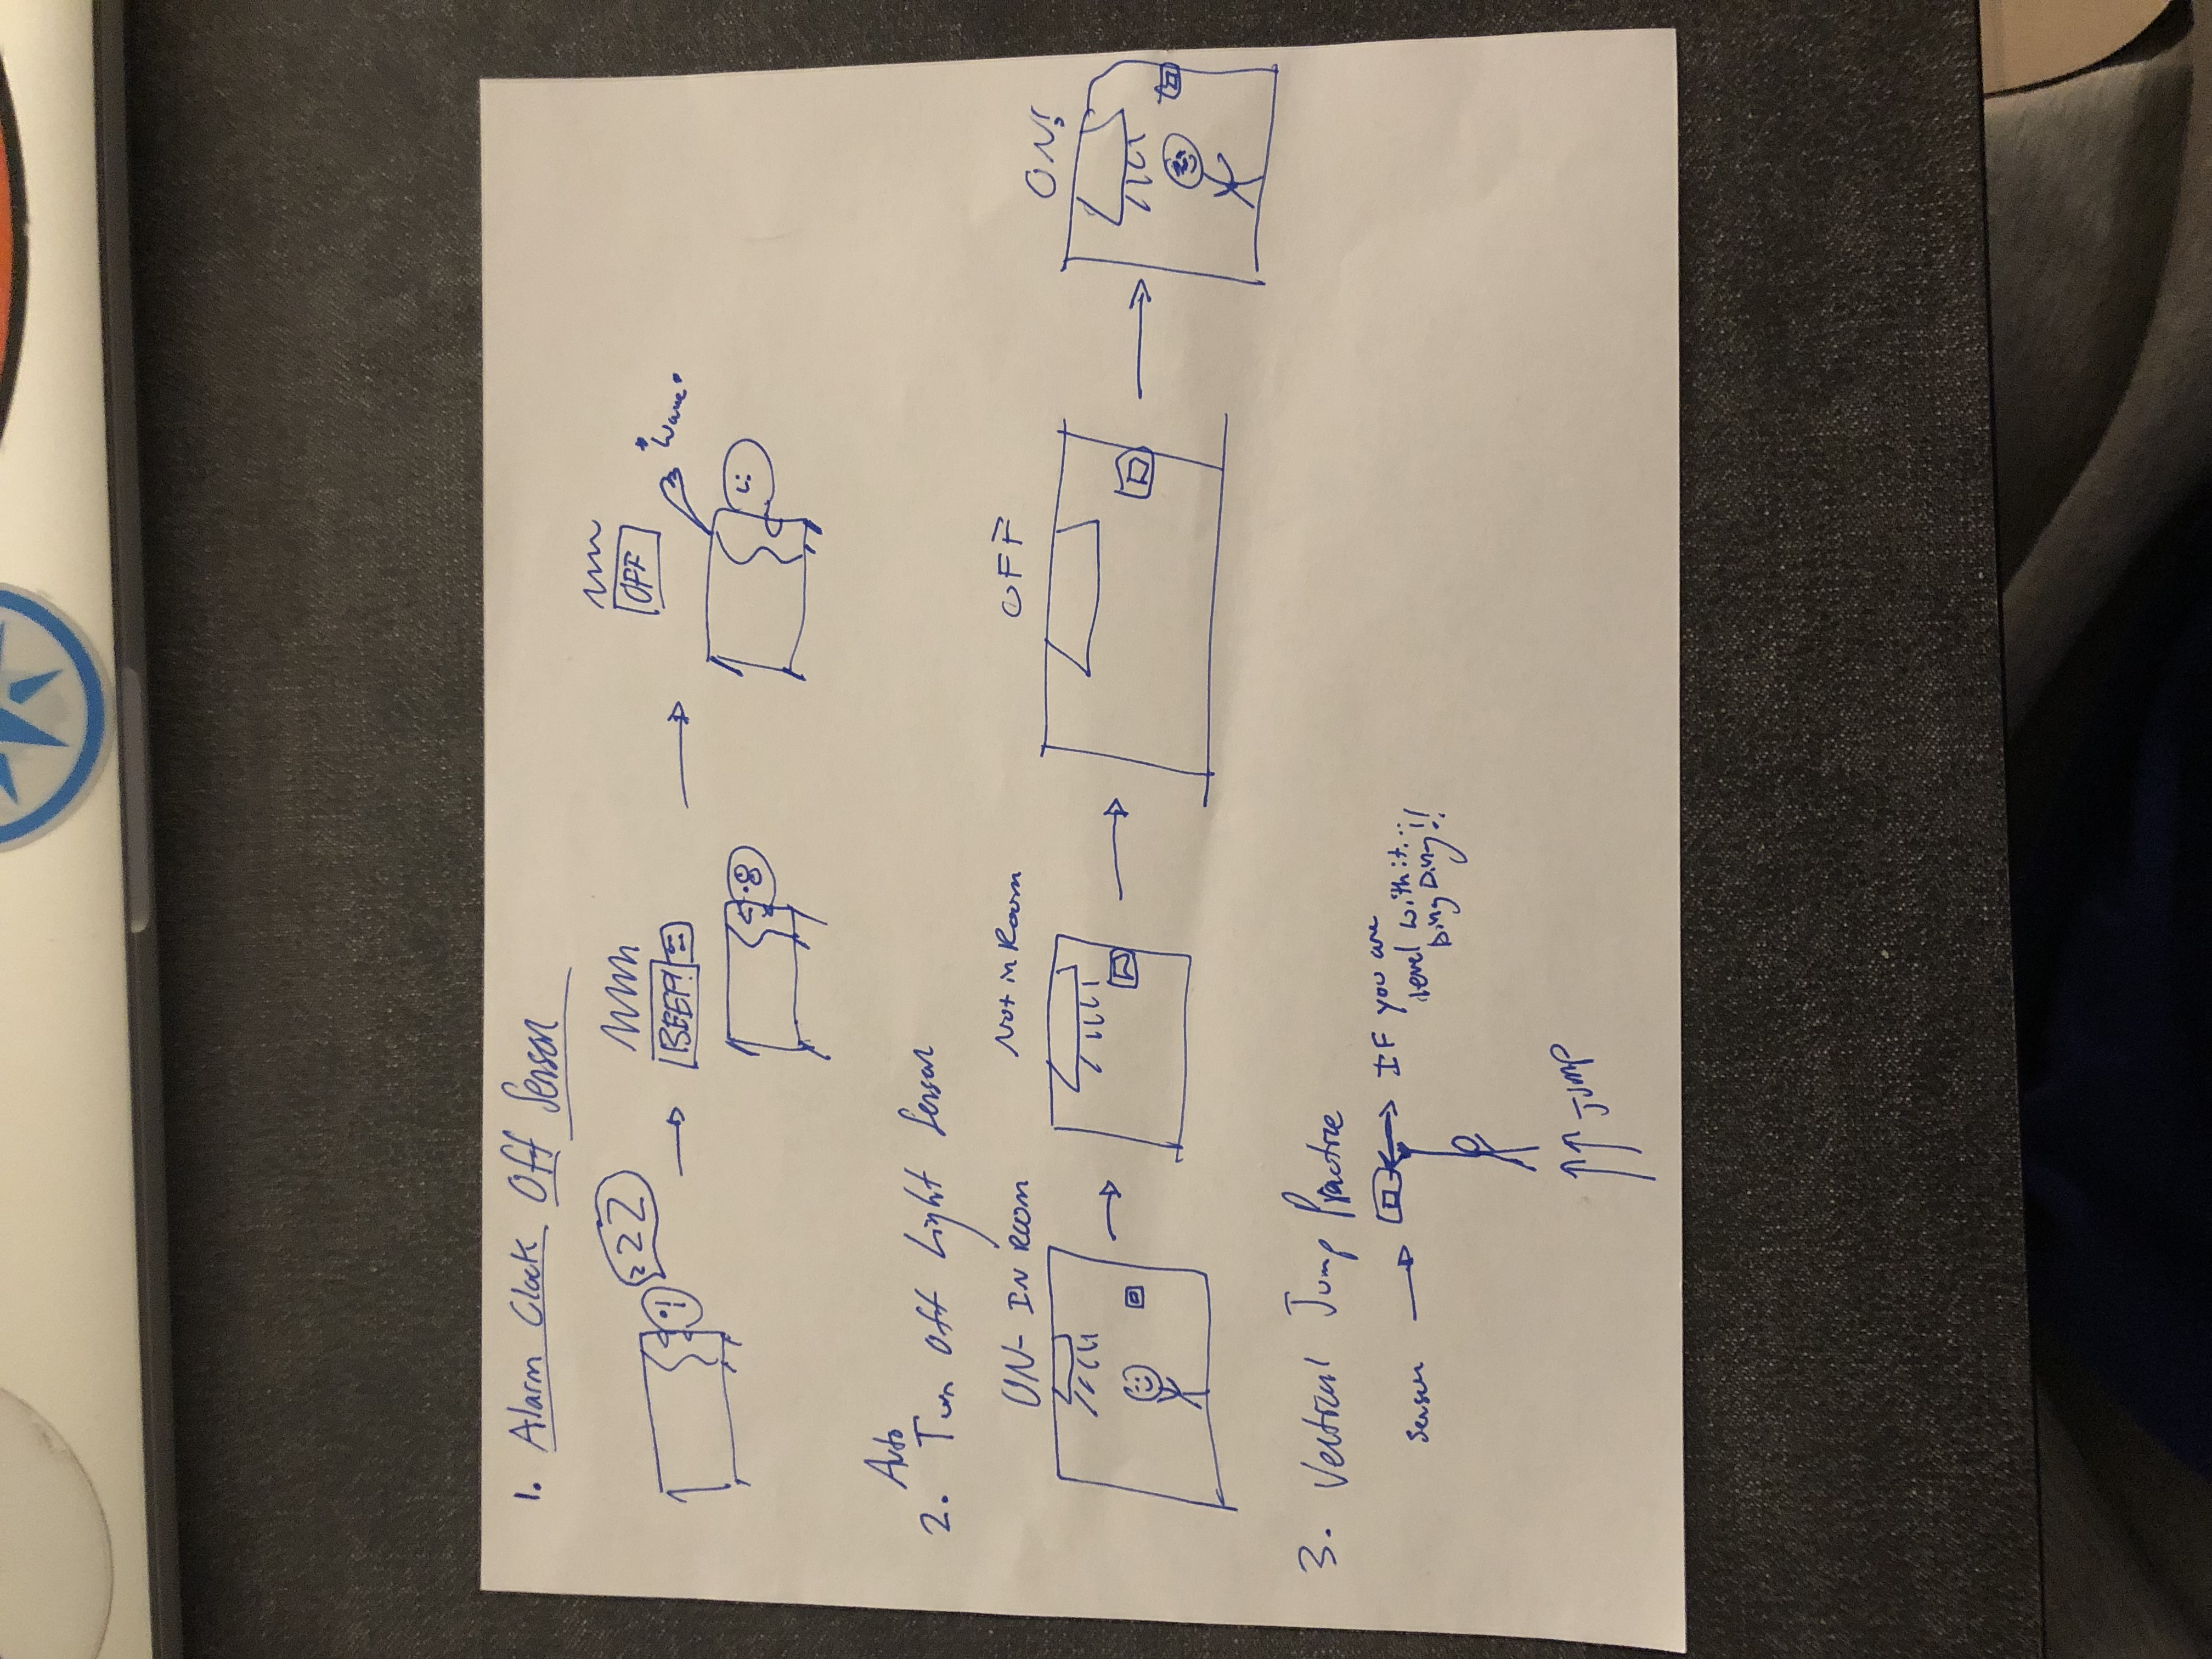 1. Alarm Clock Off Sensor
zzZ
BEEP!
OFF
*wave*
Auto
2. Turn Off Light Sensor
ON- IN ROOM
Not in Room
OFF
ON!
3. Vertical Jump Practice
Sensor
IF you are
level with it...
Ding Ding!!
Jump